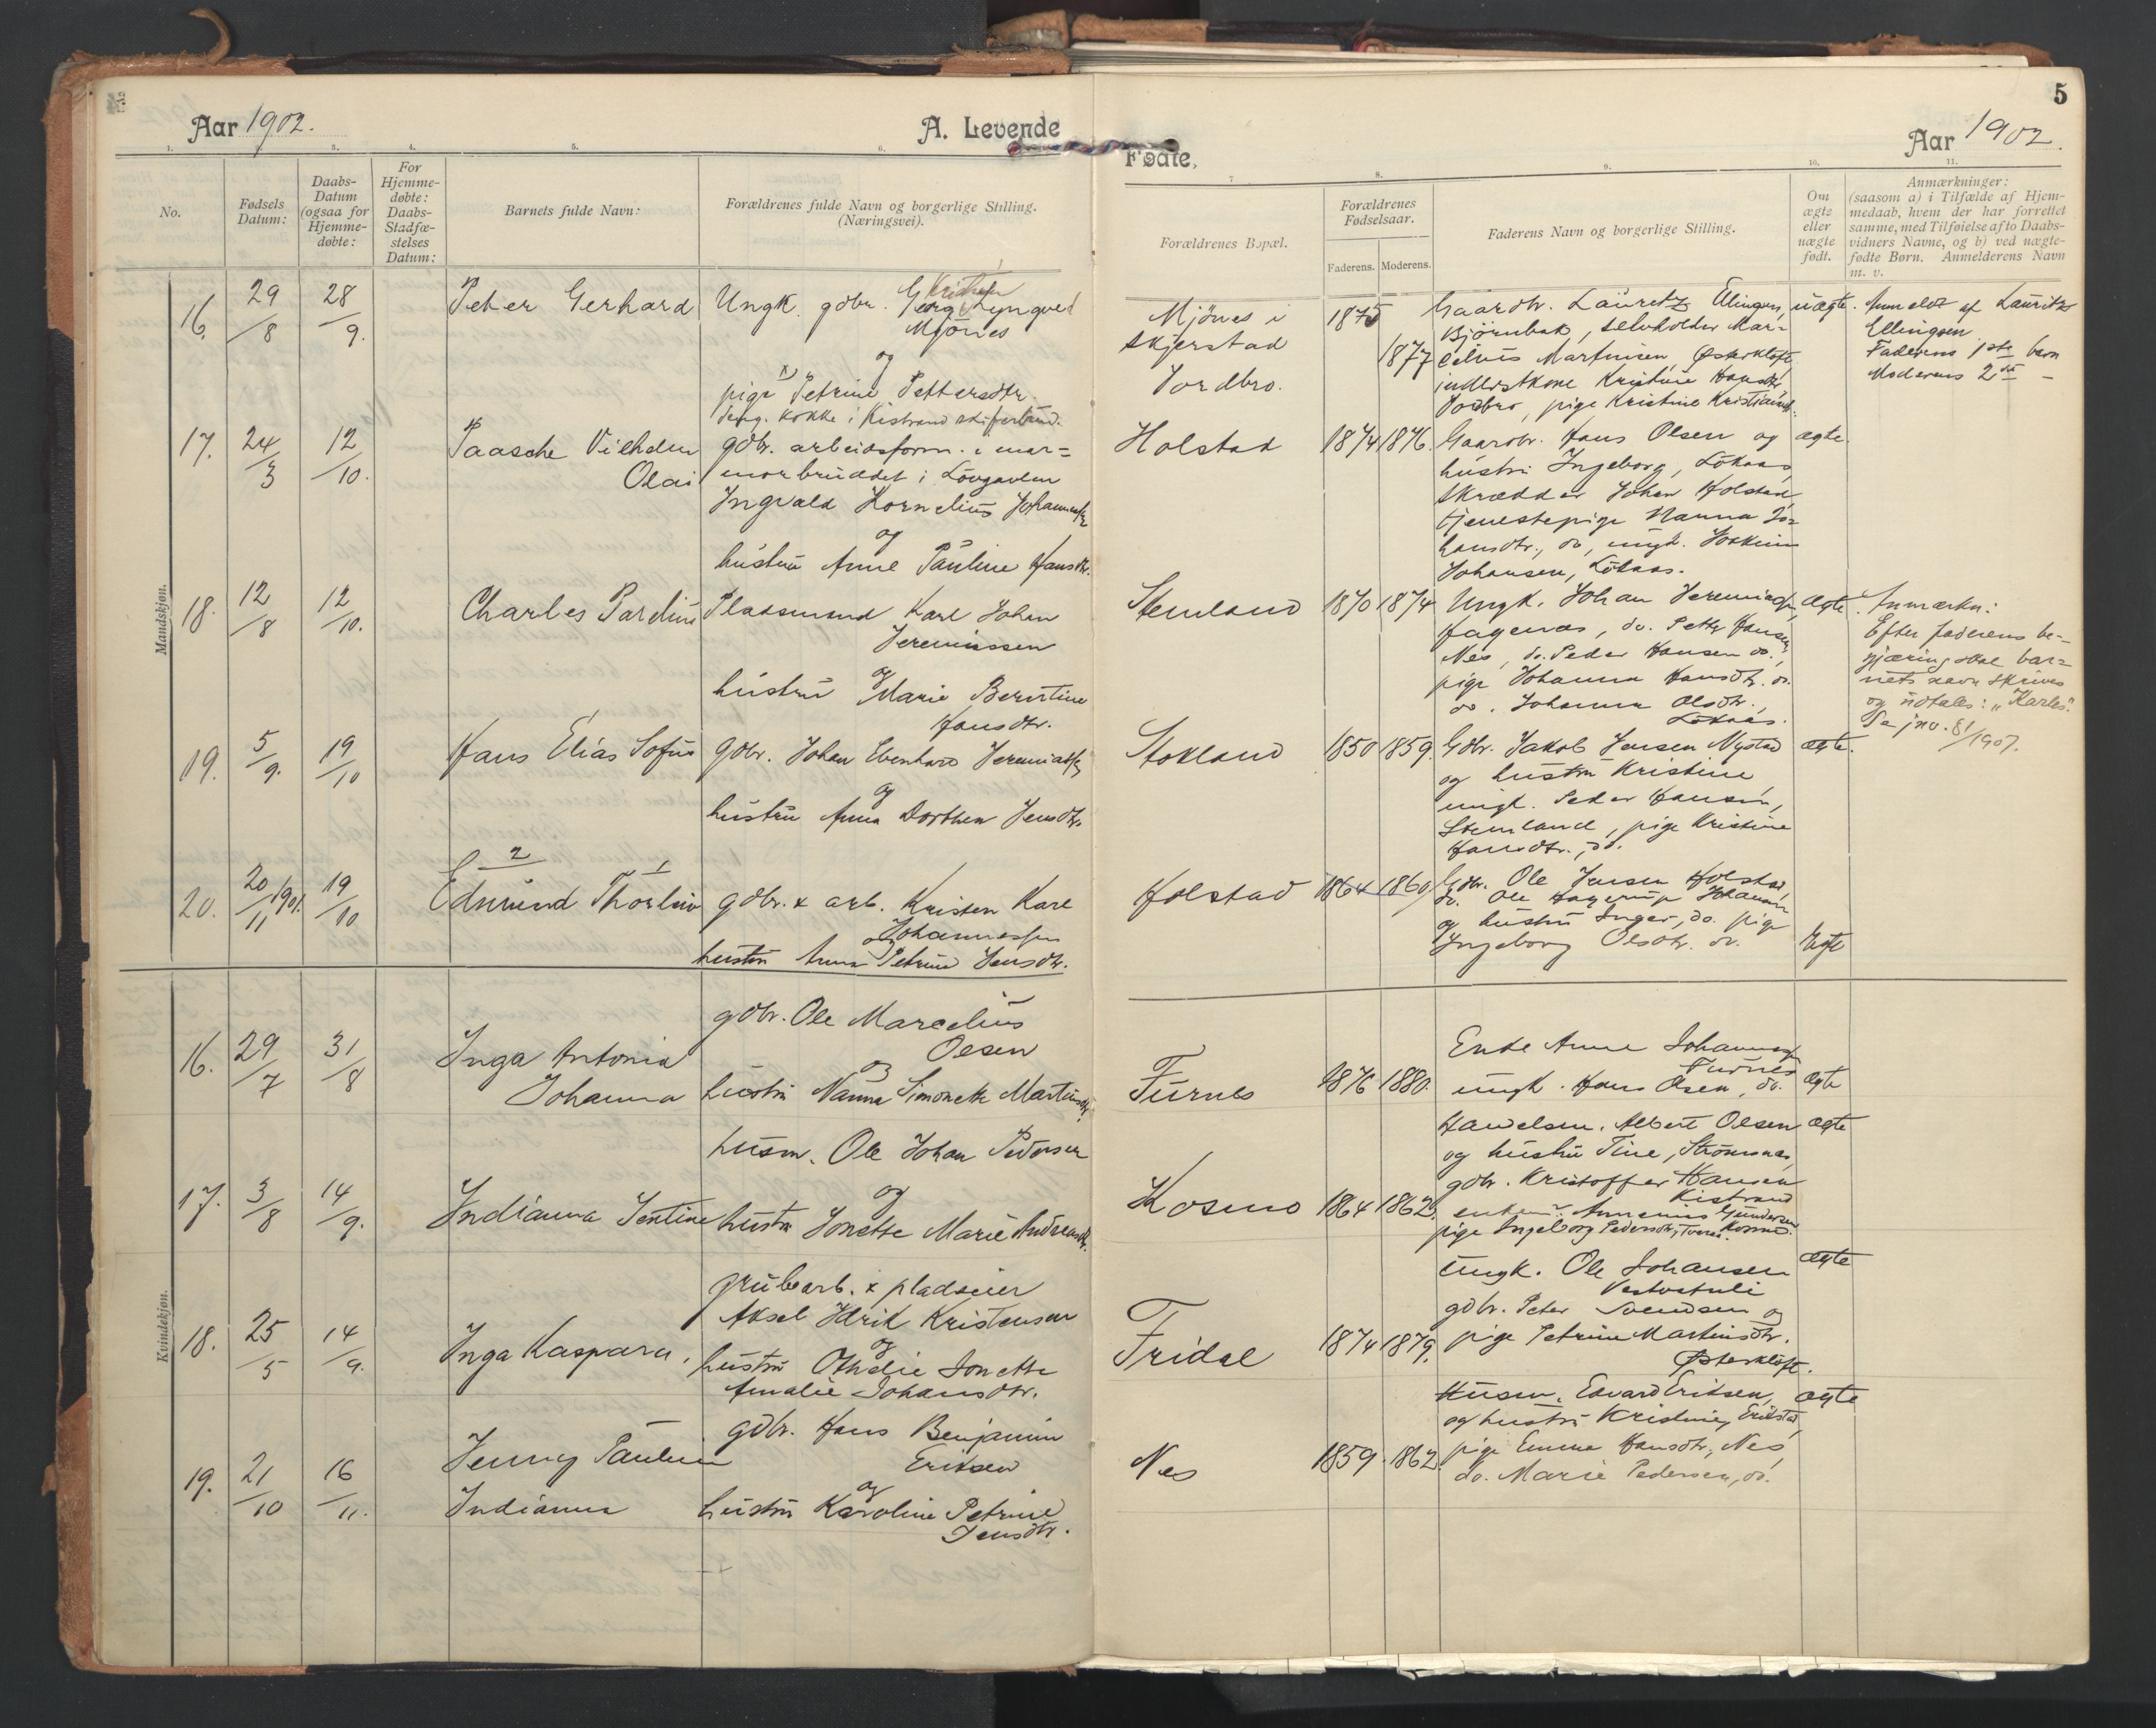 Aar 1902.
A. Levende
No.
Fødsels Datum:
Daabs-Datum (ogsaa for Hjemme-døbte:
For Hjemme-døbte: Daabs-Stadfæ-stelses Datum:
Barnets fulde Navn:
Forældrenes fulde Navn og borgerlige Stilling.
(Næringsvei).
Mandskjøn.
16. 29/8 28/9. Peter Gerhard
Ungk. gdbr. Georg Lyngved
Mjönes
og
pige Petrine Pettersdtr.
17. 24/3 12/10. Paasche Vilhelm
Olai
gdbr. arbeidsform. i mar=
morbruddet i Lövgavlen
Ingvald Kornelius Johannessen
og
hustru Anne Pauline Hansdtr.
18. 12/8 12/10. Charles Pardius
Pladsmand Karl Johan
Jeremiassen
og
hustru Marie Berntine
Hansdtr.
19. 5/9. 19/10 Hans Elias Sofus
Gdbr. Johan Ebenhard Jeremiass.
og
hustru Anna Dorthea Jensdtr.
20. 20/11 1901. 19/10 Edmund Thorleiv
2 1
gdbr. & arb. Kristen Karl
Johannessen
og
hustru Anna Petrine Jensdtr.
Kvindekjøn.
16. 29/7 31/8 Inga Antonia
Johanna
gdbr. Ole Marcelius
Olsen
og
hustru Nanna Simonette Martinsdtr.
17. 3/8 14/9. Indianna Jentine
husm. Ole Johan Pedersen
og
hustru Jonette Marie Andreasdtr.
18. 25/5 14/9. Inga Kaspara,
grubearb. & pladseier
Aksel Hdrik Kristensen
og
hustru Othelie Jonette
Amalie Johansdtr.
19. 21/10 16/11. Jenny Pauline
Indianna
gdbr. Hans Benjamin
Eriksen
og
hustru Karoline Petrine
Jensdtr.
5
Fødte,
Aar 1902.
Forældrenes Bopæl.
Forældrenes Fødselsaar.
Faderens. Moderens.
Faderens Navn og borgerlige Stilling.
Om ægte eller uægte født.
Anmærkninger:
(saasom a) i Tilfælde af Hjem-
medaab, hvem der har forrettet
samme, med Tilføielse af to Daabs-
vidners Navne, og b) ved uægte-
fødte Børn. Anmelderens Navn
m. v.
Mjönes i
Skjerstad
Jordbro.
1875
1877
Gaardbr. Lauritz Ellingsen,
Björnbak, selvholder Mar=
celius Martinsen, Østerkløft,
inderstkone Kristine Hansdtr.
Jordbro, pige Kristine Kristiansd.
uægte.
Anmeldt af Lauritz
Ellingsen.
Faderens 1ste barn
Moderens 2det —
Holstad
1874 1876.
Gaardbr. Hans Olsen og
hustru Ingeborg, Lökaas,
skrædder Johan Holstad,
tjenestepige Nanna Jo=
hansdtr., do, ungk. Joakim
Johansen, Lökaas.
ægte.
Stemland
1870 1874
Ungk. Johan Jeremiass.,
Hagenæs, do. Petter Hansen,
Nes, do. Peder Hansen do.,
pige Johanna Hansdtr. do.
do. Johanna Olsdtr.,
Lökaas.
ægte.
Anmærkn:
Efter faderens be-
gjæring skal bar=
nets navn skrives
og udtales: „Karles".
Stokland
1850 1859.
Gdbr. Jakob Jensen Nystad
og hustru Kristine,
ungk. Peder Hansen,
Stemland, pige Kristine
Hansdtr., do.
ægte.
Holstad
1864 1860
Gdbr. Ole Jensen Holstad,
do. Ole Hagerup Johansen
og hustru Inger, do. pige
Ingeborg Olsdtr. do.
Ægte
Furnes
1876 1880.
Enke Anne Johannesd.
Furnes
ungk. Hans Olsen, do.
ægte
Kosmo
1864 1862.
Handelsm. Albert Olsen
og hustru Tine, Strömsnæs,
gdbr. Kristoffer Hansen
Kistrand
pige Ingeborg Pedersdtr.,
ægte
Fridal
1874 1879.
Ungk. Ole Johansen
Vestvatnli
gdbr. Peter Svendsen og
pige Petrine Martinsdtr.
Østerkløft.
ægte
Nes
1859. 1862.
Husm. Edvard Eriksen,
og hustru Kristine, Erikstad,
pige Emma Hansdtr., Nes,
do. Marie Pedersen, do.
ægte